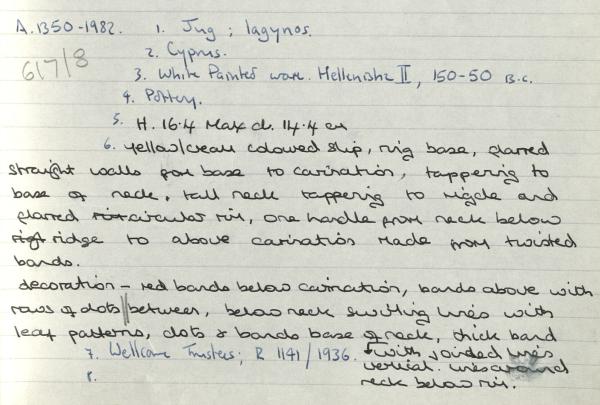 A.1350-1982. 1. Jug ; lagynos.
617/8
2. Cyprus.
3. White Painted ware. Hellenistic II, 150-50 B.C.
4. Pottery.
5. H. 16.4 Max d. 14.4 cm
6. yellow/cream coloured slip, ring base, flarred
straight walls from base to carination, tappering to
base of neck, tall neck tappering to riggle and
flarred circular rim, one handle from neck below
ridge to above carination made from twisted
bands.
decoration - red bands below carination, bands above with
rows of dots between, below neck swilling lines with
leaf patterns, dots & bands base of neck, thick band
7. Wellcome Trustees; R 1141/1936. with joined lines
vertical. lines around
8.
neck below rim.